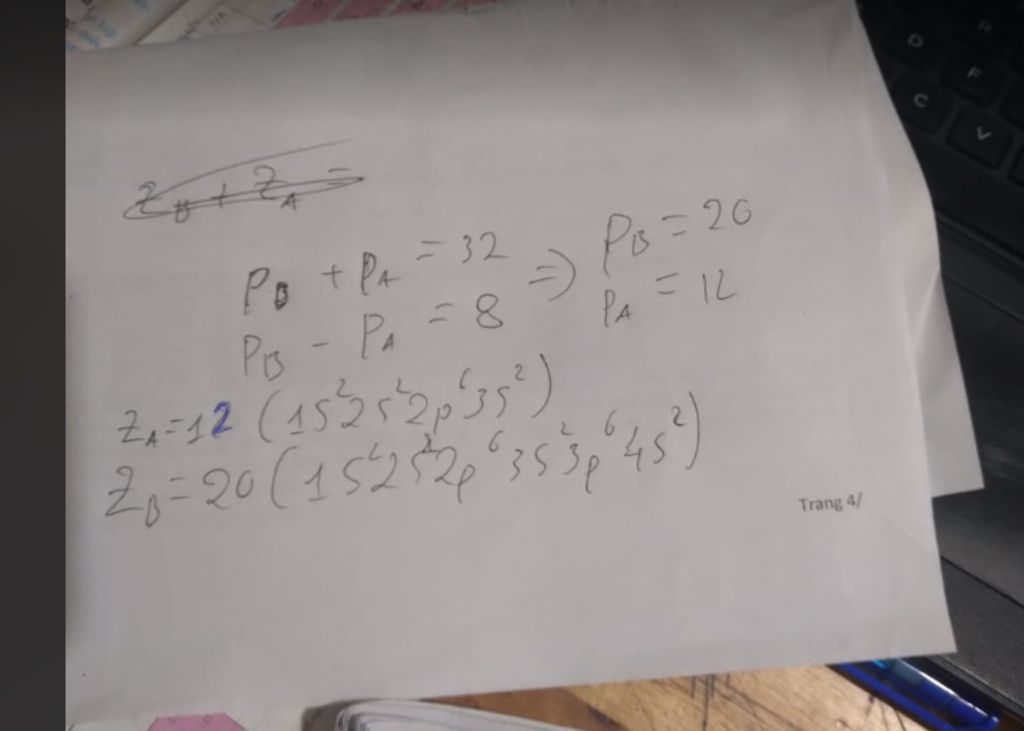 Z_B + Z_A =
P_B + P_A = 32 => P_B = 20
P_B - P_A = 8 P_A = 12
Z_A = 12 (1s²2s²2p⁶3s²)
Z_B = 20 (1s²2s²2p⁶3s²3p⁶4s²)
Trang 4/
NA
R
D
F
C
V